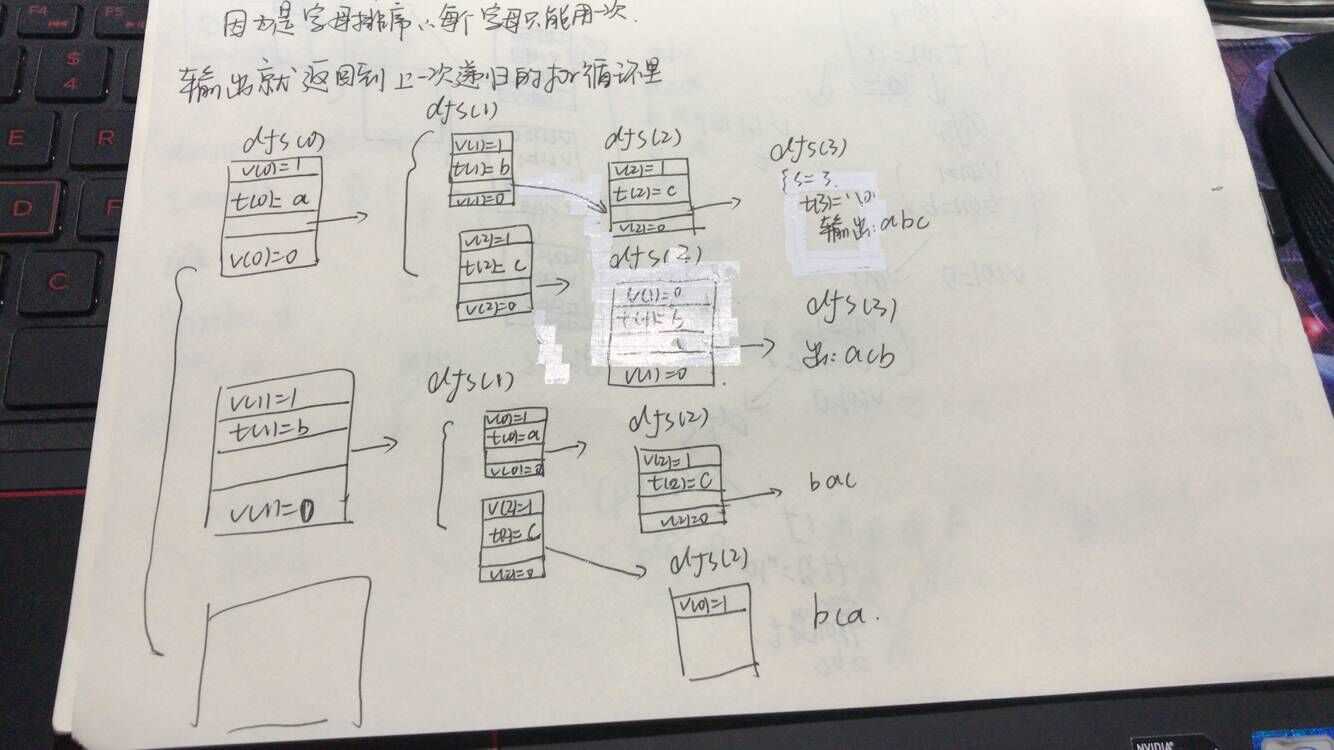 因为是字母排序,∴每个字母只能用一次.
输出就返回到上一次递归的for循环里
dfs(0)
v(0)=1
t(0)=a
v(0)=0
dfs(1)
v(1)=1
t(1)=b
v(1)=0
v(2)=1
t(2)=c
v(2)=0
dfs(2)
v(2)=1
t(2)=c
v(2)=0
dfs(3)
s=3
t(3)='\0'
输出:abc
dfs(2)
v(1)=0
t(1)=b
v(1)=0
dfs(3)
出:acb
v(1)=1
t(1)=b
v(1)=0
dfs(1)
v(0)=1
t(0)=a
v(0)=0
v(2)=1
t(2)=C
v(2)=0
dfs(2)
v(2)=1
t(2)=C
v(2)=0
bac
dfs(2)
v(0)=1
bca.
F4
F5
$
4
E
R
D
F
C
NVIDIA